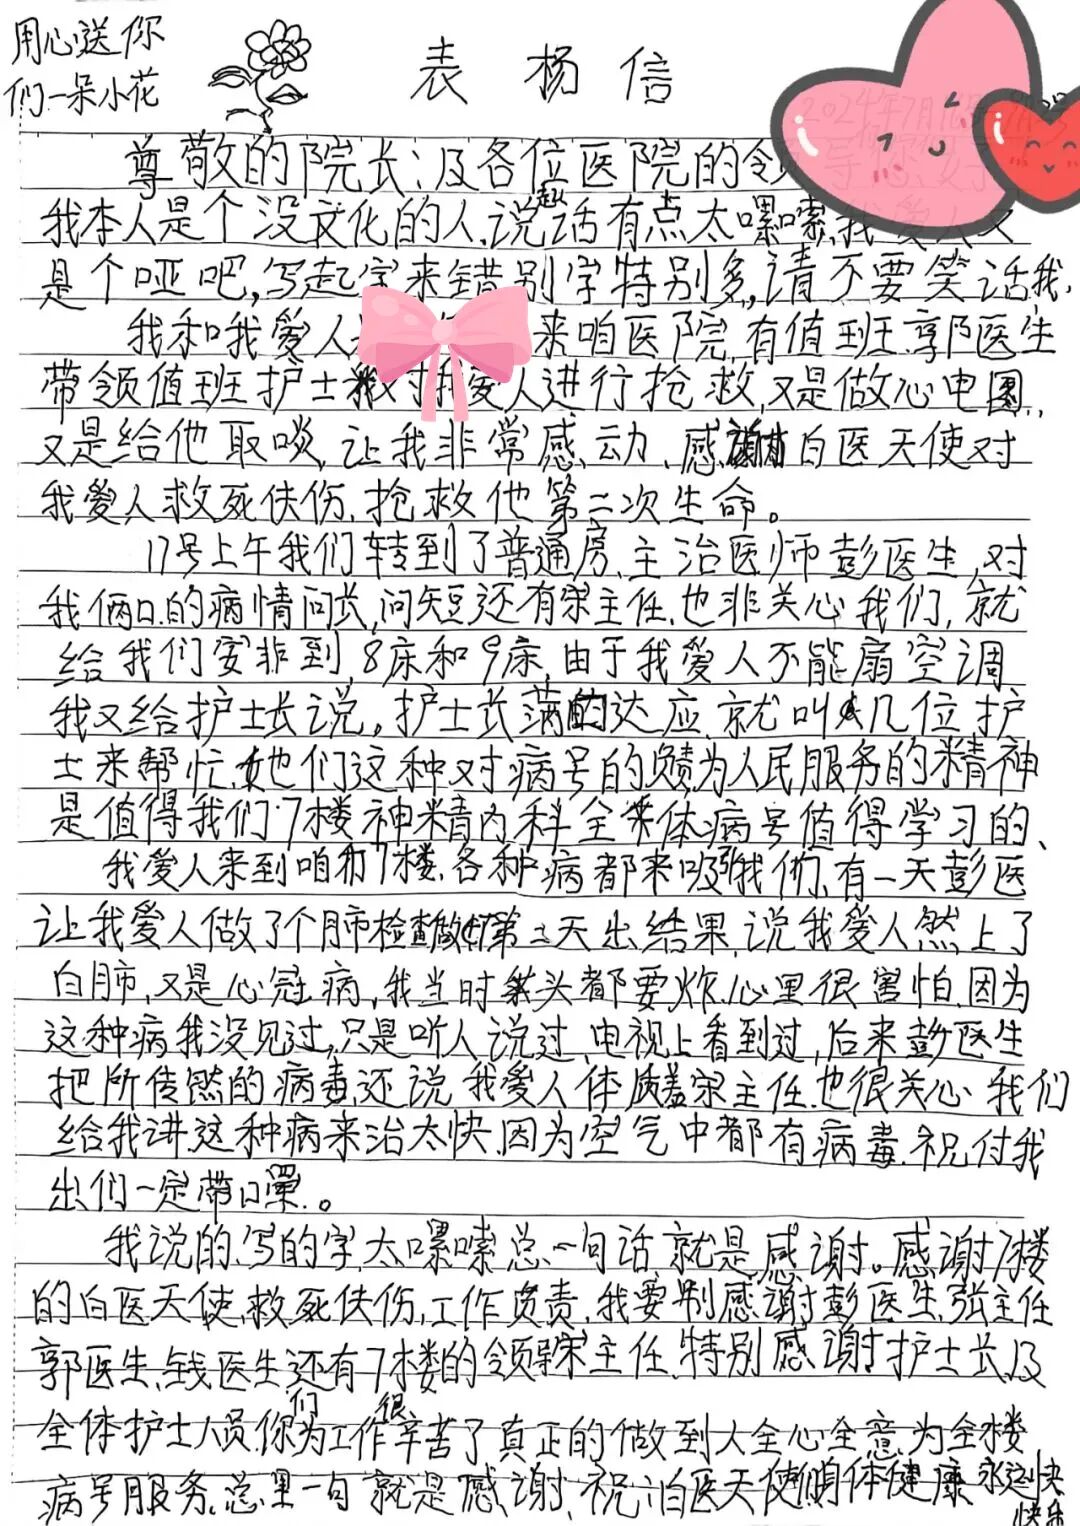 用心送你
们一朵小花
表杨信
2024年7月18日
尊敬的院长:及各位医院的领导您好
我本人是个没文化的人,说起话有点太嘿嗦,我爱人又
是个哑吧,写起字来错别字特别多,请不要笑话我,
我和我爱人 来咱医院,有值班郭医生
带领值班护士对我爱人进行抢救,又是做心电图,
又是给他取啖,让我非常感动,感谢白医天使对
我爱人救死伕伤,抢救他第二次生命。
17号上午我们转到了普通房,主治医师彭医生,对
我俩口的病情问长,问短还有宋主任,也非关心我们,就
给我们安非到,8床和9床,由于我爱人不能扇空调
我又给护士长说,护士长满的达应,就叫几位护
士来帮忙,她们这种对病号的负责为人民服务的精神
是值得我们7楼神精内科全体病号值得学习的、
我爱人来到咱们7楼,各种病都来吸我们,有一天彭医
让我爱人做了个肺检查做的第二天出结果,说我爱人然上了
白肺,又是心冠病,我当时头都要炸,心里很害怕,因为
这种病我没见过,只是听人说过,电视上看到过,后来彭医生
把所传然的病毒还说,我爱人体质差宋主任也很关心我们
给我讲这种病来治太快,因为空气中都有病毒,祝付我
出们一定带口罩。
我说的,写的字,太嘿嗦总一句话,就是感谢。感谢7楼
的白医天使,救死伕伤,工作负责,我要别感谢彭医生,张主任
郭医生,钱医生还有7楼的领导宋主任,特别感谢护士长,及
全体护士人员,你们为工作很辛苦了真正的做到人全心全意为全楼
病号服务,总里一句就是感谢,祝:白医天使们身体健康永远快
快乐